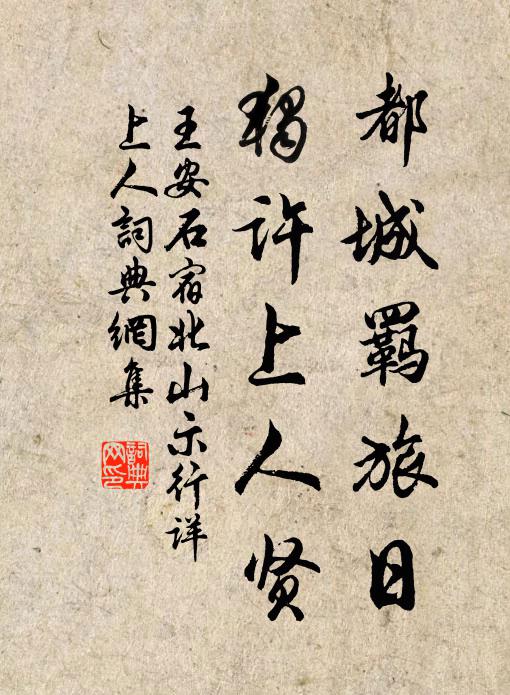 都城羁旅日
独许上人贤
王安石宿北山示行详
上人詞典網集
詞典網印